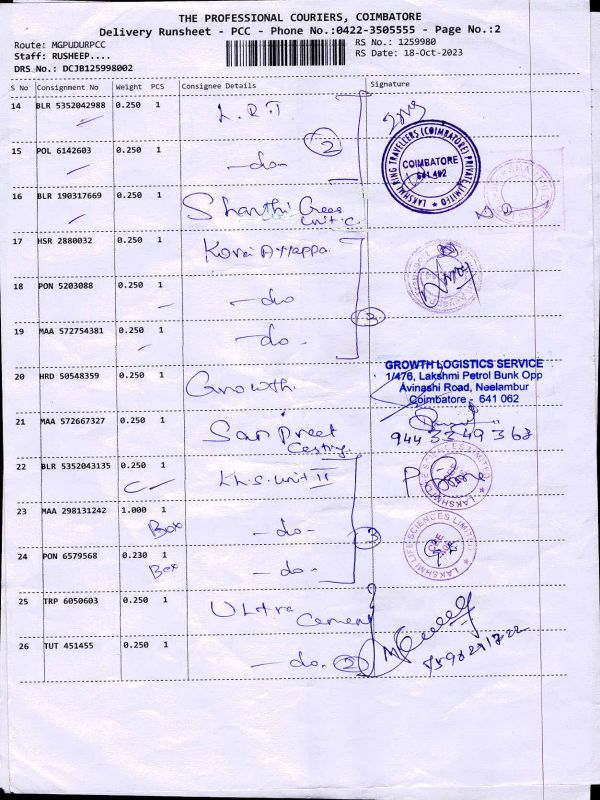 THE PROFESSIONAL COURIERS, COIMBATORE
Delivery Runsheet - PCC - Phone No.:0422-3505555 - Page No.:2
Route: MGPUDURPCC RS No.: 1259980
Staff: RUSHEEP.... RS Date: 18-Oct-2023
DRS No.: DCJB125998002
S No Consignment No Weight PCS Consignee Details Signature
14 BLR 5352042988 0.250 1 L.R.T
LAKSHMI RING TRAVELLERS (COIMBATORE) PRIVATE LIMITED
COIMBATORE
641 402
15 POL 6142603 0.250 1 -do-
2
16 BLR 190317669 0.250 1 Shanthi Gears
unit C
17 HSR 2880032 0.250 1 Kovai Ayyappa
18 PON 5203088 0.250 1 -do
3
19 MAA 572754381 0.250 1 -do-
GROWTH LOGISTICS SERVICE
1/476, Lakshmi Petrol Bunk Opp
Avinashi Road, Neelambur
Coimbatore - 641 062
20 HRD 50548359 0.250 1 Growth
21 MAA 572667327 0.250 1 San Preet
Casting
944 33 49 368
22 BLR 5352043135 0.250 1 L.L.S. unit II
C
23 MAA 298131242 1.000 1 -do-
Box
3
LAKSHMI LIFE SCIENCES LIMITED
24 PON 6579568 0.230 1 -do-
Box
25 TRP 6050603 0.250 1 Ultra
Cement
26 TUT 451455 0.250 1 -do. 2